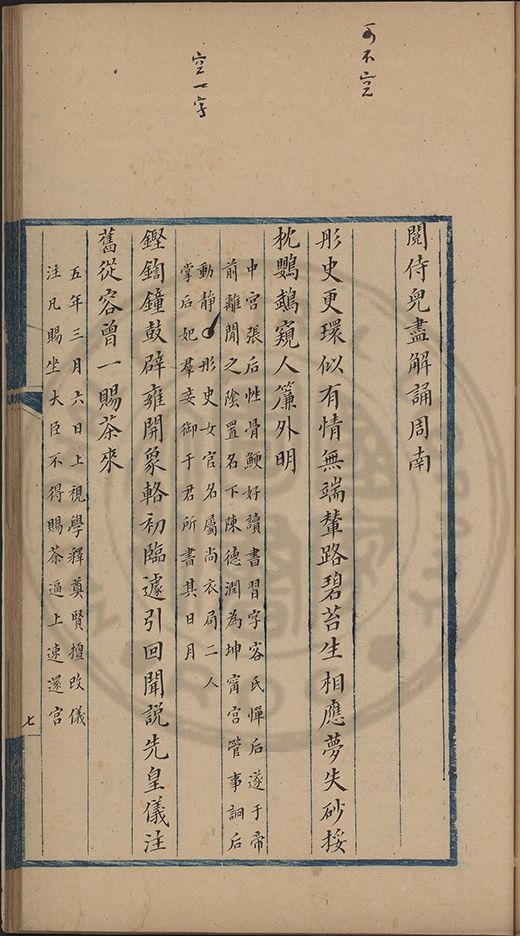 可不空
空一字
閱侍兒盡解誦周南
彤史更環似有情無端輦路碧苔生相應夢失砂挼
枕鸚鵡窺人簾外明
中宮張后性骨鯁好讀書習字客氏憚后遂于帝
前離間之陰置名下陳德潤為坤甯宮管事詗后
動靜彤史女官名屬尚衣局二人
掌后妃羣妾御于君所書其日月
鏗鍧鐘鼓辟雍開象輅初臨遽引回聞說先皇儀注
舊從容曾一賜茶來
五年三月六日上視學釋奠賢擅改儀
注凡賜坐大臣不得賜茶逼上速還宮
七